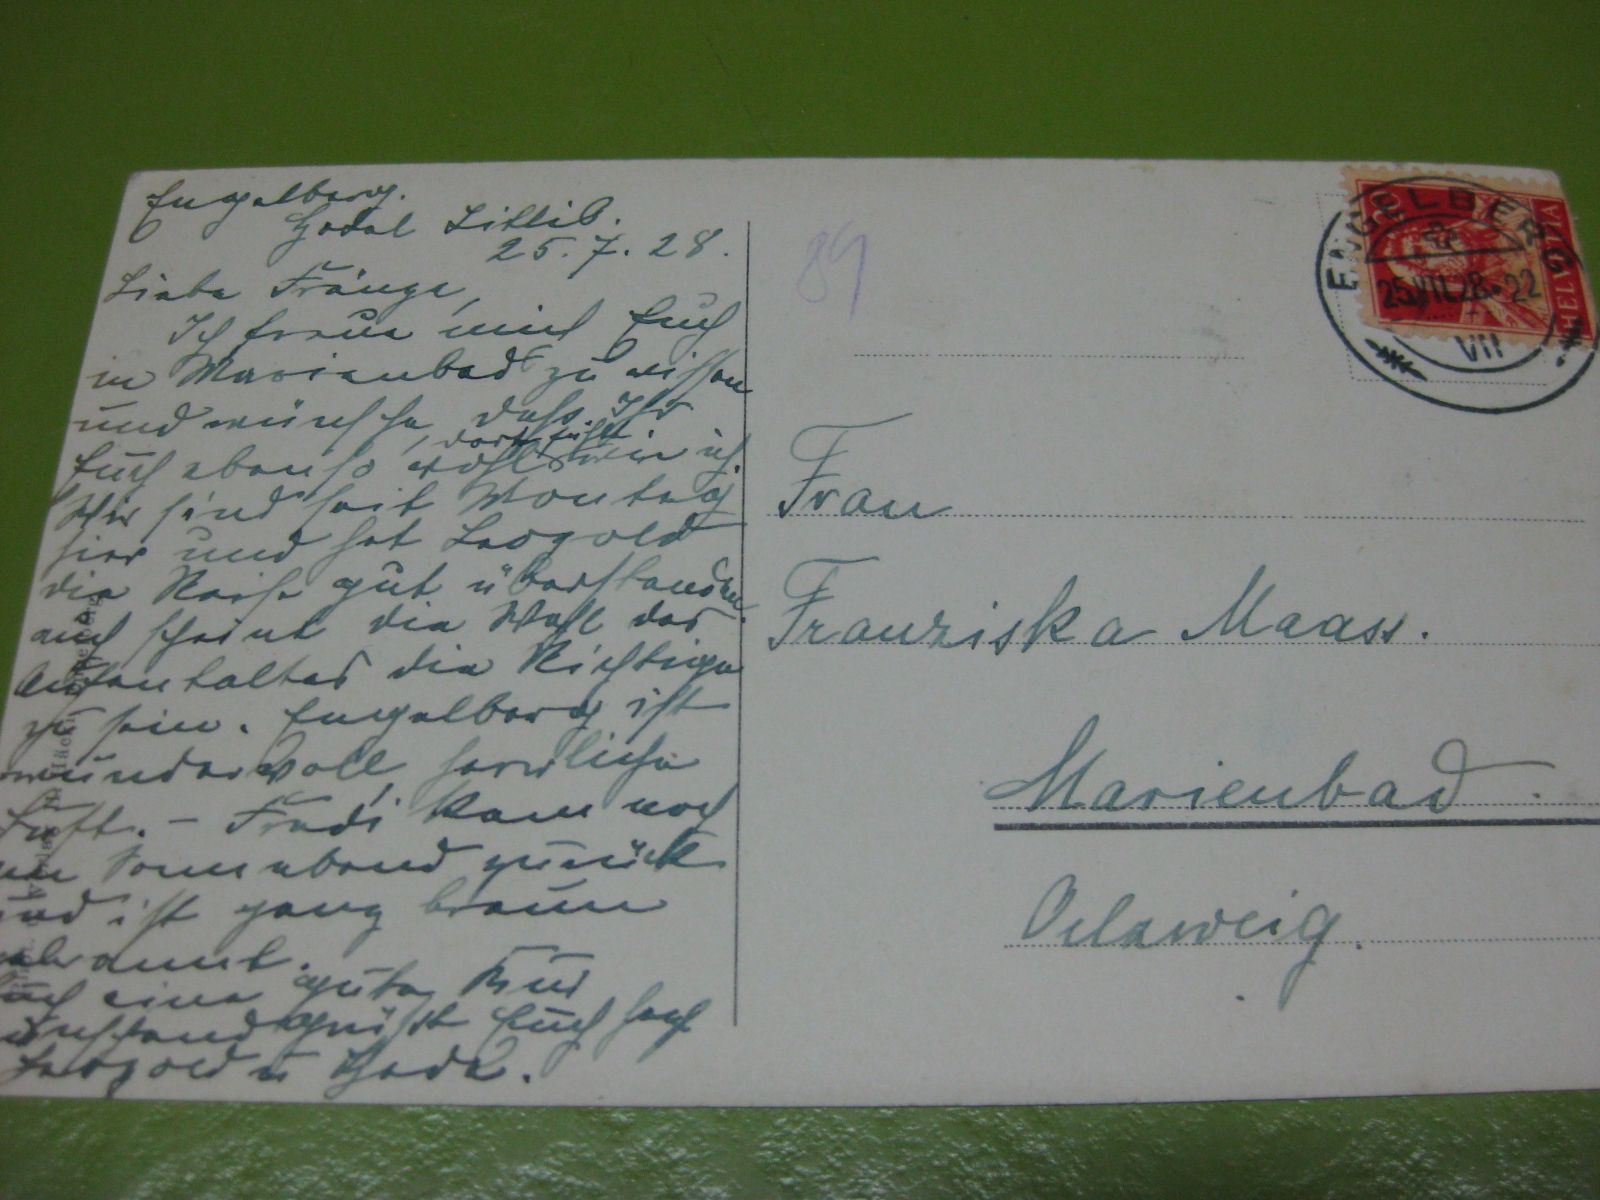 Engelberg.
Hotel Titlis.
25. 7. 28.
Liebe Fränze,
Ich freue mich Euch
in Marienbad zu wissen
und wünsche, dass Ihr
Euch ebenso wohl dort fühlt wie ich.
Wir sind seit Montag
hier und hat Leopold
die Reise gut überstanden.
auch scheint die Wahl des
Aufenthaltes die Richtige
zu sein. Engelberg ist
wundervoll, herrliche
Luft. – Fredi kam noch
am Sonnabend zurück
und ist ganz braun
gebrannt.
Euch eine gute Kur
wünschend grüsst Euch herzl
Leopold u
89
ENGELBERG
25.VII.28.22
VII
HELVETIA
Frau
Franziska Maass.
Marienbad.